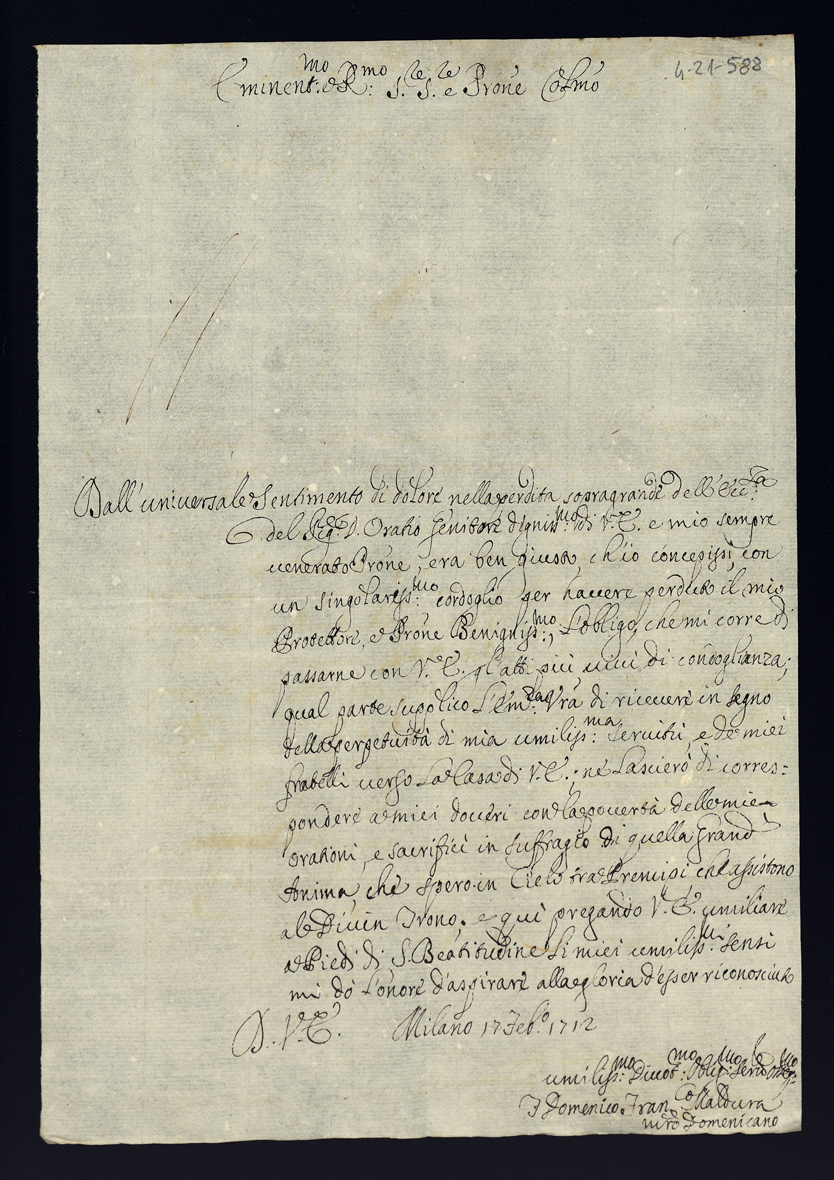 4-21-588
Eminent:mo e R:mo S.re S.re e Prõne Colmõ
Dall'universale Sentimento di dolore nella perdita sopragrande dell'Ecc:za
del Sig.r D. Oratio Genitore digniss:mo di V.E. e mio sempre
venerato Prõne, era ben giusto, ch'io concepissi, con
un singolariss:mo cordoglio per havere perduto il mio
Protettore, e Prõne Benigniss:mo, L'obligo, che mi corre di
passarne con V.E. gl'atti più vivi di condoglianza;
qual parte supplico L'Em:za Vrã di ricevere in segno
della perpetuità di mia umiliss:ma servitù, e de miei
fratelli verso La Casa di V.E.; ne Lascierò di corres=
pondere a miei doveri con la povertà delle mie
orationi, e sacrifici in suffragio di quella Grand
Anima, che spero in Cielo tra Premisi che assistono
al Divin Trono; e quì pregando V.E. umiliare
a Piedi di S. Beatitudine Li miei umiliss:mi sensi
mi dò L'onore d'aspirare alla gloria d'esser riconosciuto
D. V.E. Milano 17 Feb.o 1712
umiliss:mo Divot:mo Oblig:mo Serv.
F Domenico Fran.co Maldura
Domenicano